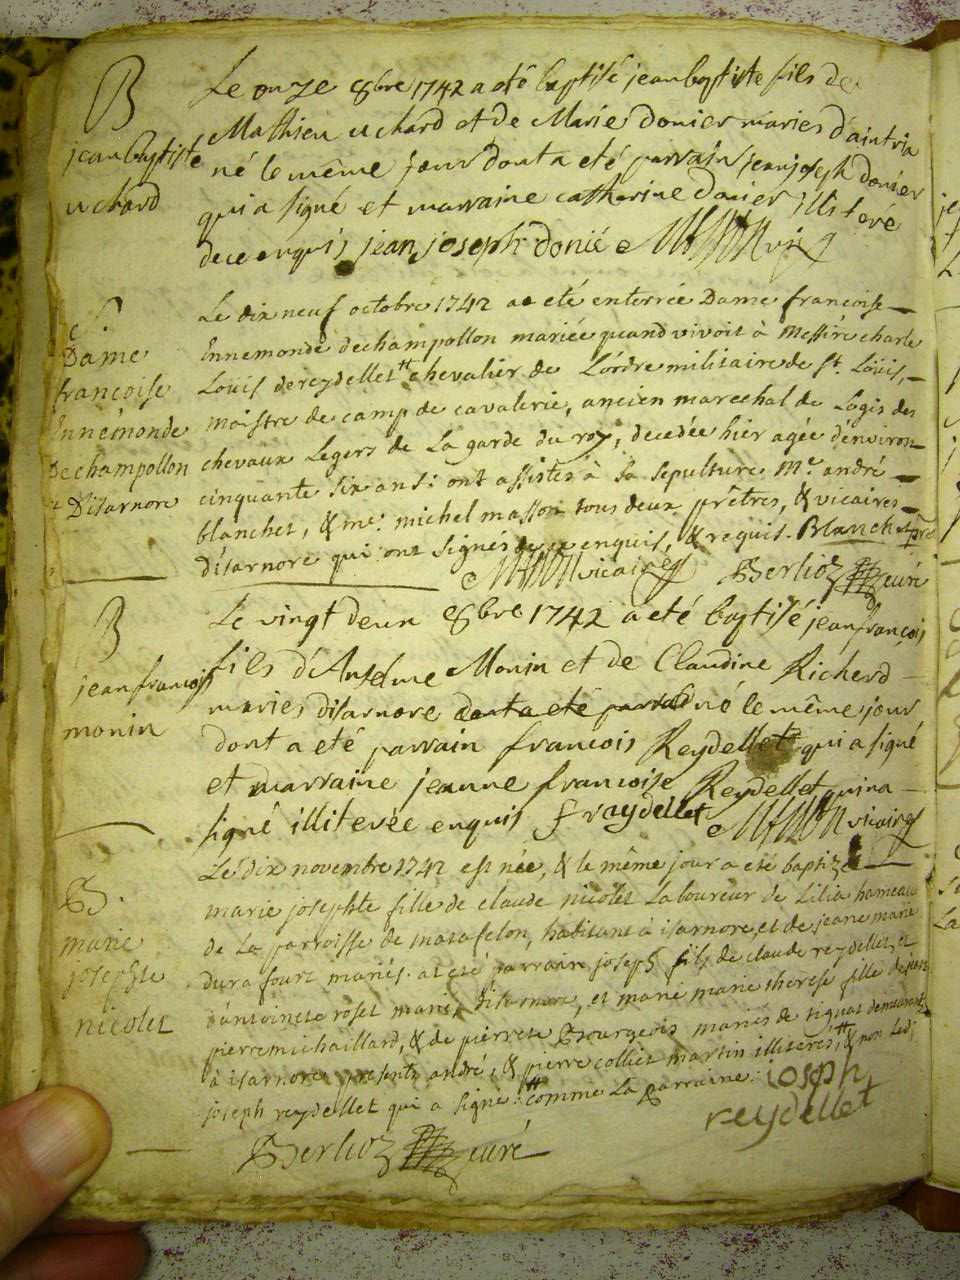 B
jean baptiste
uchard
Le onze 8bre 1742 a eté baptisé jean baptiste fils de
Mathieu uchard et de Marie donier mariés d'aintria
né le même jour dont a eté parrain jean joseph donier
qui a signé et marraine catherine donier illiteré
de ce enquis jean joseph donié
S.
Dame
françoise
Ennemonde
Dechampollon
Disarnore
Le dix neuf octobre 1742 a eté enterrée Dame françoise
Ennemonde dechampollon mariée quand vivoit à Messire charle
Louis dereydellet chevalier de L'ordre militaire de St. Loüis,
maistre de camp de cavalerie, ancien marechal de Logis des
chevaux Legers de La garde du roy, decedée hier agée d'environ
cinquante six ans: ont assistés à sa sepulture Mre. andré
blanchet, & mre. michel masson tous deux prêtres, & vicaires
d'isarnore qui ont signés de ce enquis, & requis. Blanchet ptre
vicaire Berlioz curé
B
jean francois
monin
Le vingt deux 8bre 1742 a eté baptisé jean françois
fils d'Anselme Monin et de Claudine Richerd
mariés disarnore dont a eté parrain né le même jour
dont a eté parrain francois Reydellet qui a signé
et marraine jeanne francoise Reydellet qui n'a
signé illiterée enquis f reydellet vicaire
B.
marie
josephte
nicolet
Le dix novembre 1742 est née, & le même jour a eté baptizée
marie josephte fille de claude nicolet Laboureur de Lilia hameau
de La parroisse de matafelon, habitant à isarnore, et de jeane marie
dura fourt mariés. a eté parrain joseph fils de claude reydellet, et
d'antoinete roset mariés d'isarnore, et marie marie therese fille de
pierre michaillard, & de pierrete Bourgeois mariés de signat demeurant
à isarnore presents andré, & pierre collet martin illiterés, & non Led;
joseph reydellet qui a signé: comme La parraine: ioseph
reydellet
Berlioz curé